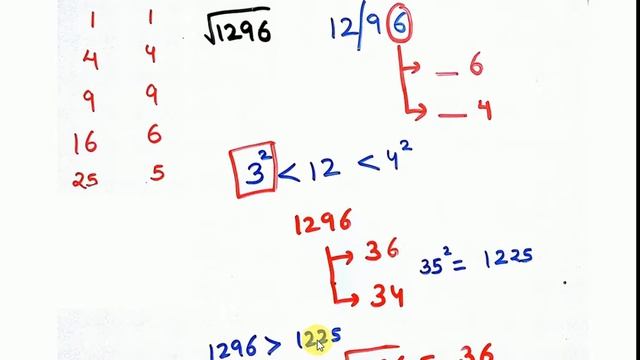 1 1
4 4
9 9
16 6
25 5
√1296
12/96
_ 6
_ 4
3² < 12 < 4²
1296
36
34
35² = 1225
1296 > 1225
= 36